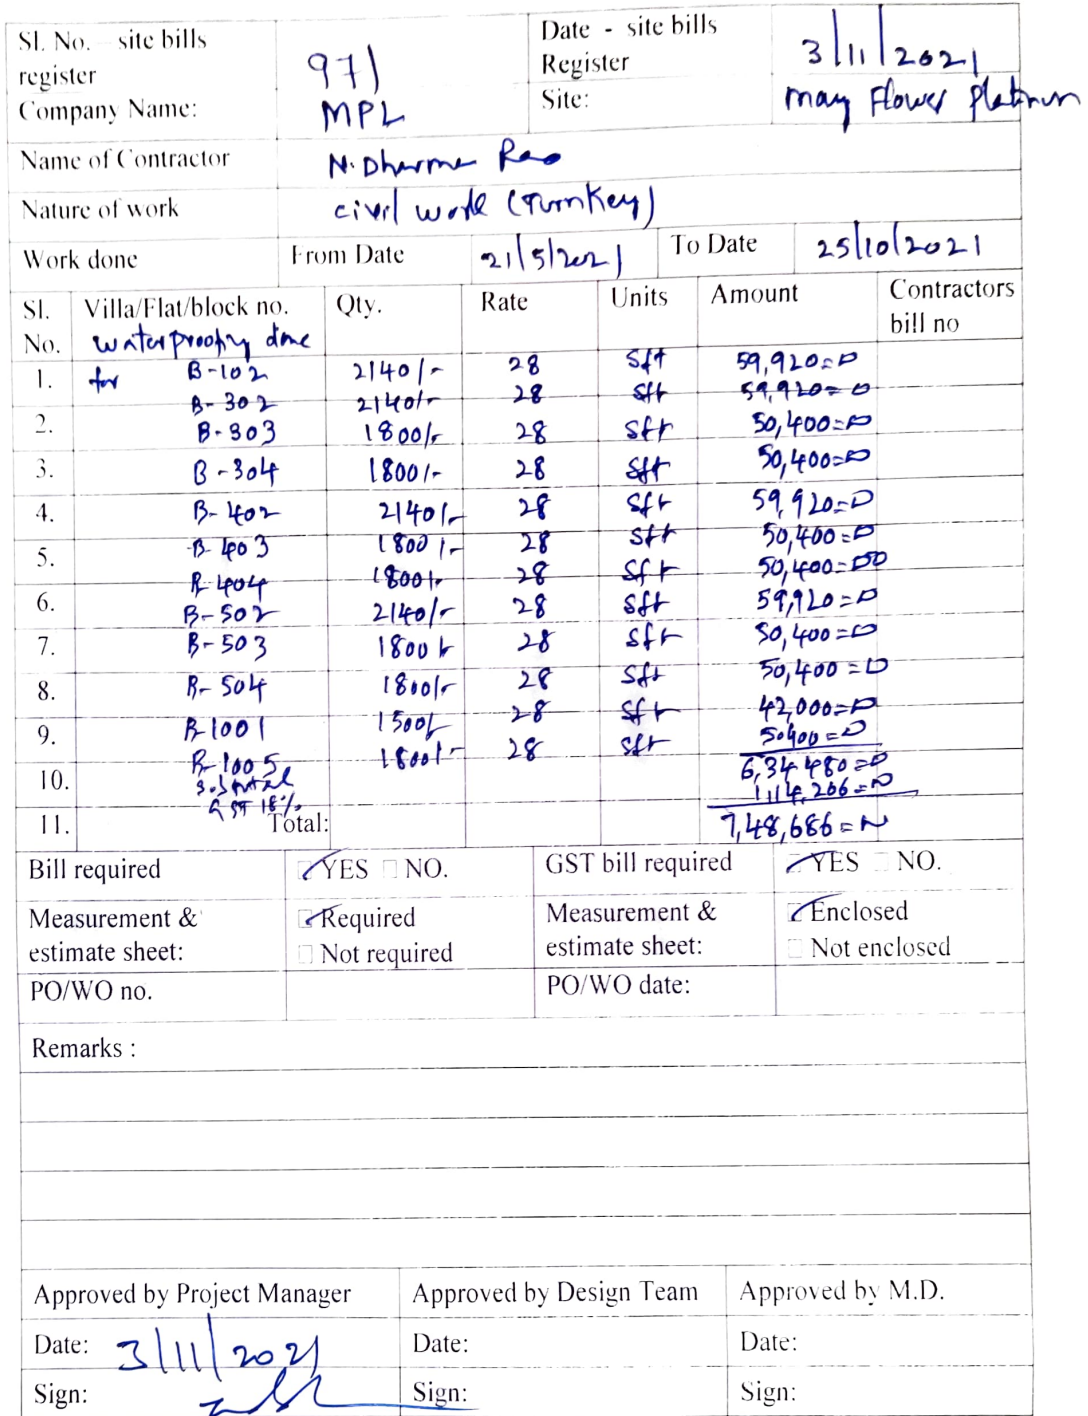 Sl. No. - site bills register 971 Date - site bills Register 3/11/2021
Company Name: MPL Site: may Flower Platinum
Name of Contractor N. Dharma Rao
Nature of work civil work (Turnkey)
Work done From Date 21/5/2021 To Date 25/10/2021
Sl. No. Villa/Flat/block no. Qty. Rate Units Amount Contractors bill no
waterproofing done
1. for B-102 2140/- 28 Sft 59,920=0
B-302 2140/- 28 Sft 59,920=0
2. B-303 1800/- 28 Sft 50,400=0
3. B-304 1800/- 28 Sft 50,400=0
4. B-402 2140/- 28 Sft 59,920=0
5. B-403 1800/- 28 Sft 50,400=0
B-404 1800/- 28 Sft 50,400=00
6. B-502 2140/- 28 Sft 59,920=0
7. B-503 1800/- 28 Sft 50,400=0
8. B-504 1800/- 28 Sft 50,400=0
9. B-1001 1500/- 28 Sft 42,000=0
B-1005 1800/- 28 Sft 50400=0
10. Subtotal 6,34,480=0
GST 18% 1,14,206=0
11. Total: 7,48,686=0
Bill required YES NO. GST bill required YES NO.
Measurement & estimate sheet: Required Measurement & estimate sheet: Enclosed
Not required Not enclosed
PO/WO no. PO/WO date:
Remarks :
Approved by Project Manager Approved by Design Team Approved by M.D.
Date: 3/11/2021 Date: Date:
Sign: Sign: Sign: